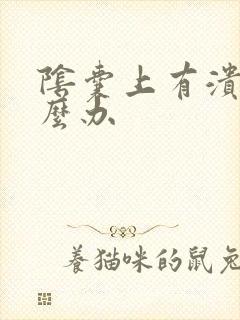 陰囊上有潰
麼办
養猫咪的鼠兔